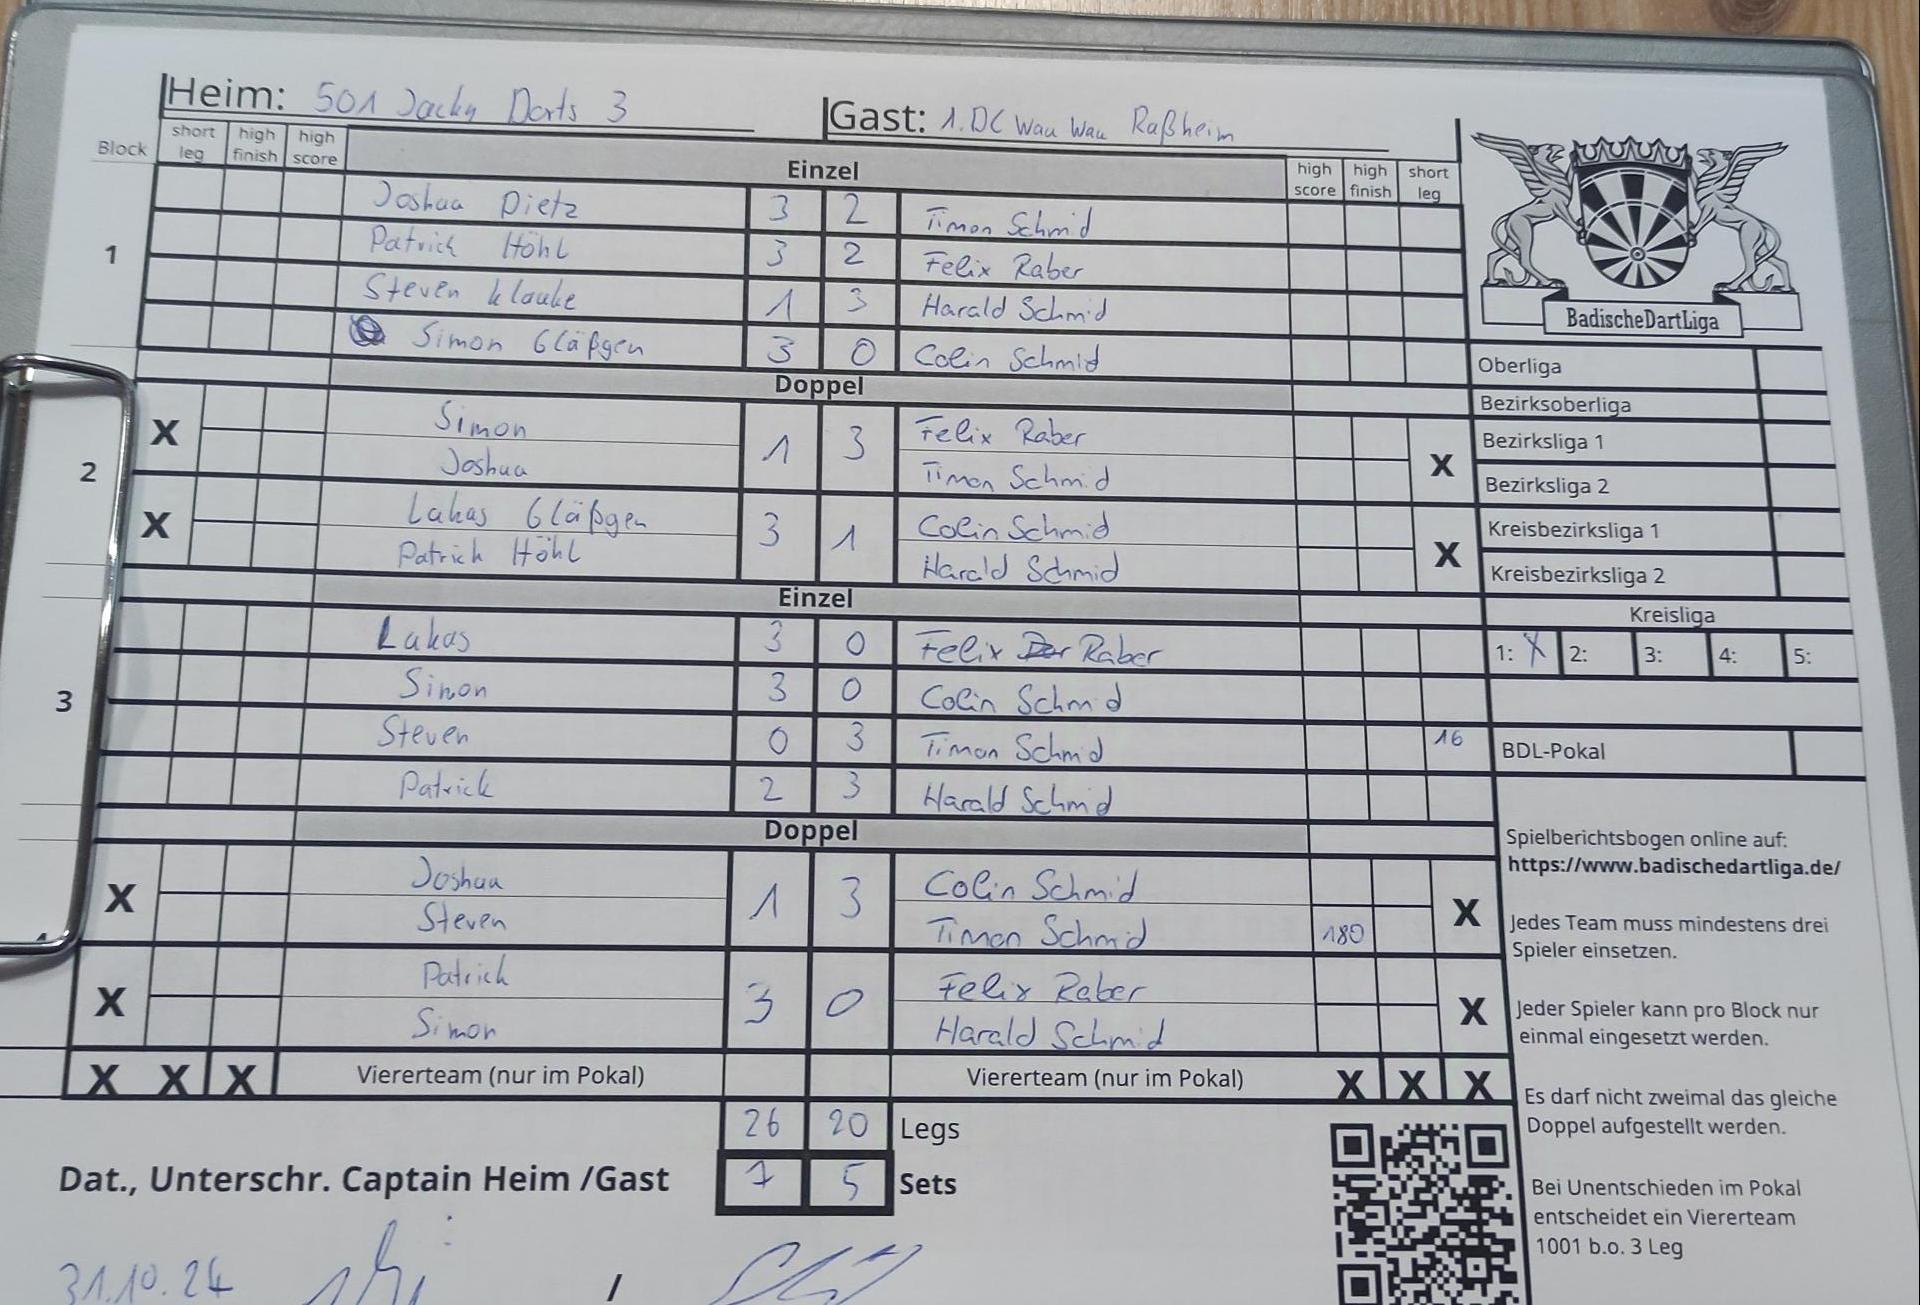 Heim: 501 Jacky Darts 3 Gast: 1. DC Wau Wau Raßheim
Block short leg high finish high score Einzel high score high finish short leg
1
Joshua Dietz 3 2 Timon Schmid
Patrick Höhl 3 2 Felix Raber
Steven Klauke 1 3 Harald Schmid
Simon Gläßgen 3 0 Colin Schmid
BadischeDartLiga
Oberliga
Doppel
Bezirksoberliga
2
X Simon 1 3 Felix Raber X
Joshua Timon Schmid
Bezirksliga 1
Bezirksliga 2
X Lukas Gläßgen 3 1 Colin Schmid X
Patrick Höhl Harald Schmid
Kreisbezirksliga 1
Kreisbezirksliga 2
Einzel
Kreisliga
1: X 2: 3: 4: 5:
3
Lukas 3 0 Felix Raber
Simon 3 0 Colin Schmid
Steven 0 3 Timon Schmid 16
Patrick 2 3 Harald Schmid
BDL-Pokal
Doppel
X Joshua 1 3 Colin Schmid X
Steven Timon Schmid 180
X Patrick 3 0 Felix Raber X
Simon Harald Schmid
X X X Viererteam (nur im Pokal) Viererteam (nur im Pokal) X X X
26 20 Legs
7 5 Sets
Dat., Unterschr. Captain Heim /Gast
31.10.24 /
Spielberichtsbogen online auf:
https://www.badischedartliga.de/
Jedes Team muss mindestens drei
Spieler einsetzen.
Jeder Spieler kann pro Block nur
einmal eingesetzt werden.
Es darf nicht zweimal das gleiche
Doppel aufgestellt werden.
Bei Unentschieden im Pokal
entscheidet ein Viererteam
1001 b.o. 3 Leg